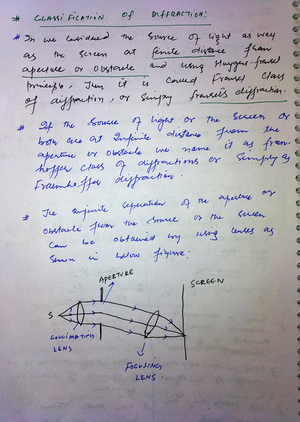 * CLASSIFICATION OF DIFFRACTION:
* In we considered the source of light as well
as the screen at finite distance from
aperture or obstacle and using Huygen-fresnel
principle, Then it is called Fresnel class
of diffraction, or simply fresnel's diffraction.
* If the source of light or the screen or
both are at infinite distance from the
aperture or obstacle we name it as fraun-
hoffer class of diffractions or simply as
Fraunhoffer diffraction.
* The infinite separation of the aperture or
obstacle from the source or the screen
can be obtained by using lenses as
shown in below figure:
APERTURE
SCREEN
S
COLLIMATING
LENS
FOCUSING
LENS.